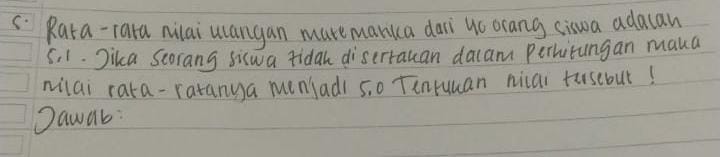 5. Rata-rata nilai ulangan matematika dari 40 orang siswa adalah
5,1. Jika seorang siswa tidak disertakan dalam Perhitungan maka
nilai rata-ratanya menjadi 5,0 Tentukan nilai tersebut !
Jawab: